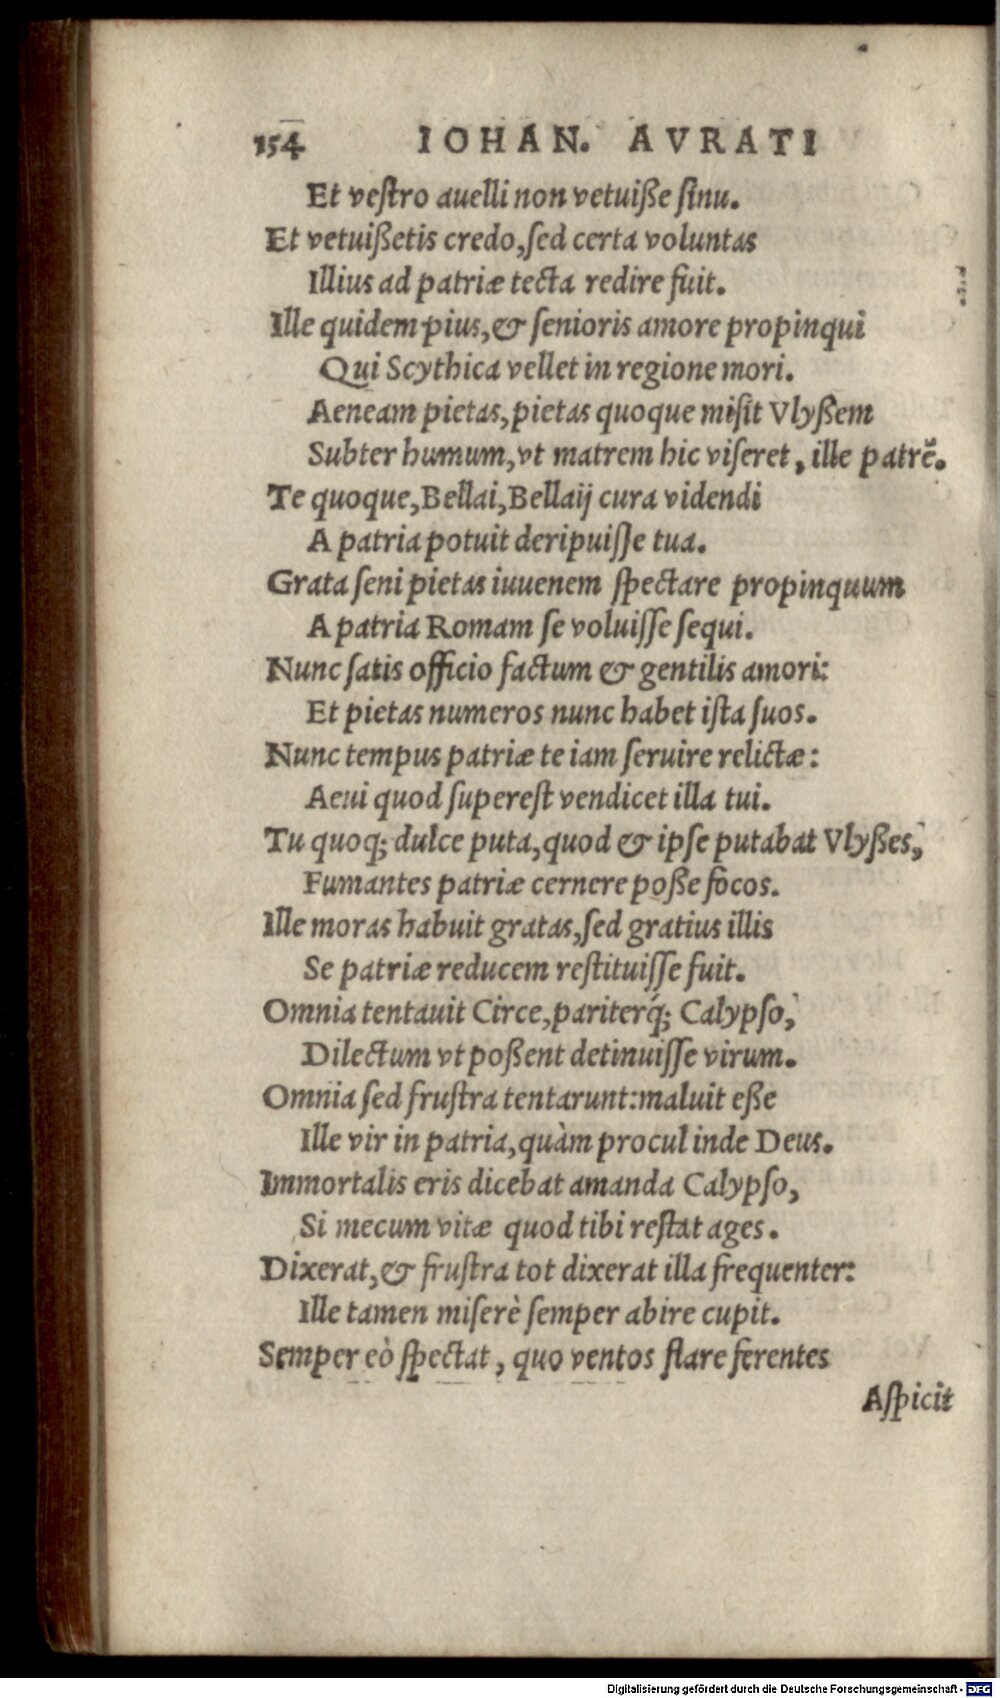 154 IOHAN. AVRATI
Et veſtro auelli non vetuiße ſinu.
Et vetuißetis credo, ſed certa voluntas
Illius ad patriæ tecta redire fuit.
Ille quidem pius, & ſenioris amore propinqui
Qui Scythica vellet in regione mori.
Aeneam pietas, pietas quoque miſit Vlyßem
Subter humum, vt matrem hic viſeret, ille patrẽ.
Te quoque, Bellai, Bellaij cura videndi
A patria potuit deripuiſſe tua.
Grata ſeni pietas iuuenem ſpectare propinquum
A patria Romam ſe voluiſſe ſequi.
Nunc ſatis officio factum & gentilis amori:
Et pietas numeros nunc habet iſta ſuos.
Nunc tempus patriæ te iam ſeruire relictæ:
Aeui quod ſupereſt vendicet illa tui.
Tu quoq; dulce puta, quod & ipſe putabat Vlyßes,
Fumantes patriæ cernere poße focos.
Ille moras habuit gratas, ſed gratius illis
Se patriæ reducem reſtituiſſe fuit.
Omnia tentauit Circe, pariterq́; Calypſo,
Dilectum vt poßent detinuiſſe virum.
Omnia ſed fruſtra tentarunt: maluit eße
Ille vir in patria, quàm procul inde Deus.
Immortalis eris dicebat amanda Calypſo,
Si mecum vitæ quod tibi reſtat ages.
Dixerat, & fruſtra tot dixerat illa frequenter:
Ille tamen miſerè ſemper abire cupit.
Semper eò ſpectat, quo ventos flare ferentes
Aſpicit
Digitalisierung gefördert durch die Deutsche Forschungsgemeinschaft - DFG